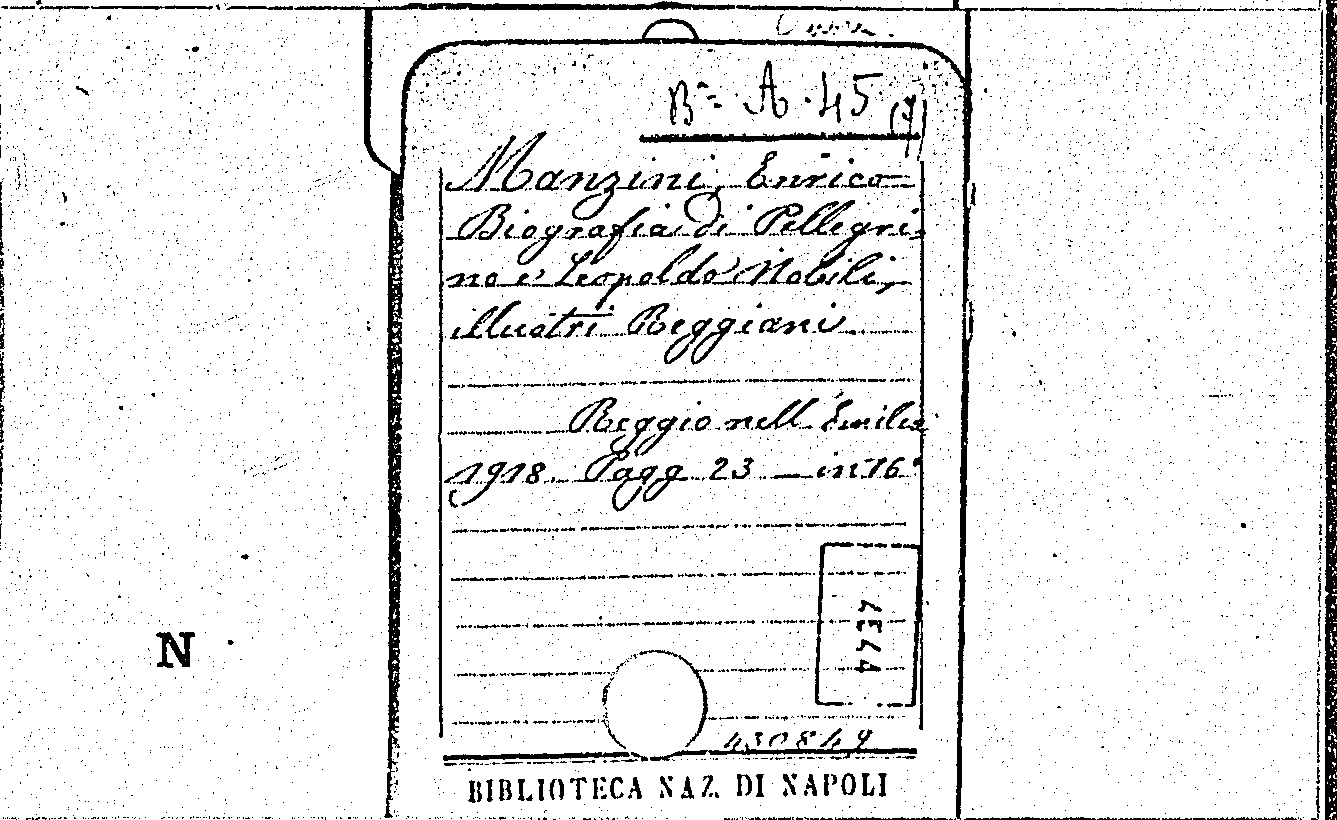 Bᵃ A. 45 (7)
Manzini, Enrico
Biografia di Pellegri-
no e Leopoldo Nobili,
illustri Reggiani.
Reggio nell'Emilia
1918. Pagg 23 — in 16°
N
430849
BIBLIOTECA NAZ. DI NAPOLI